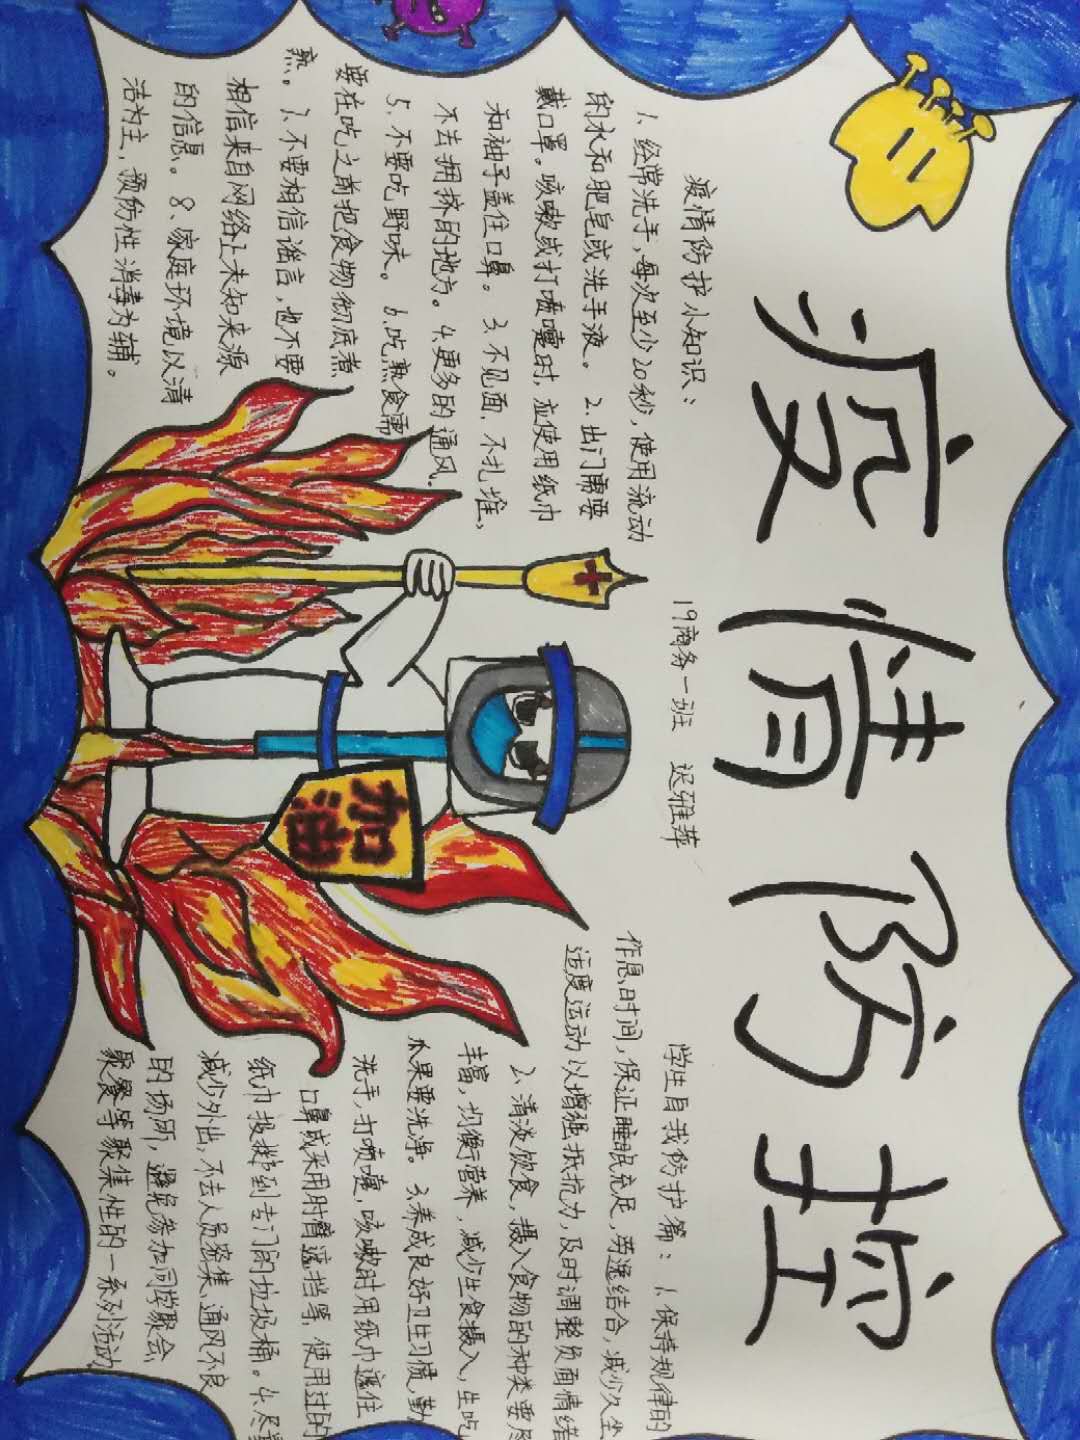 疫情防控
19商务一班 迟雅萍
疫情防护小知识：
1、经常洗手，每次至少20秒，使用流动
的水和肥皂或洗手液。2、出门需要
戴口罩。咳嗽或打喷嚏时，应使用纸巾
和袖子盖住口鼻。3、不见面，不扎堆，
不去拥挤的地方。4、更多的通风。
5、不要吃野味。6、吃熟食需
要在吃之前把食物彻底煮
熟。7、不要相信谣言，也不要
相信来自网络上未知来源
的信息。8、家庭环境以清
洁为主，预防性消毒为辅。
加油
学生自我防护篇：1、保持规律的
作息时间，保证睡眠充足，劳逸结合，减少久坐
适度运动以增强抵抗力，及时调整负面情绪
2、清淡饮食，摄入食物的种类要尽
丰富，均衡营养，减少生食摄入，生吃
瓜果要洗净。3、养成良好卫生习惯，勤
洗手，打喷嚏、咳嗽时用纸巾遮住
口鼻或采用肘臂遮挡等，使用过的
纸巾投掷到专门的垃圾桶。4、尽
减少外出，不去人员密集、通风不良
的场所，避免参加同学聚会、
聚餐等聚集性的一系列活动